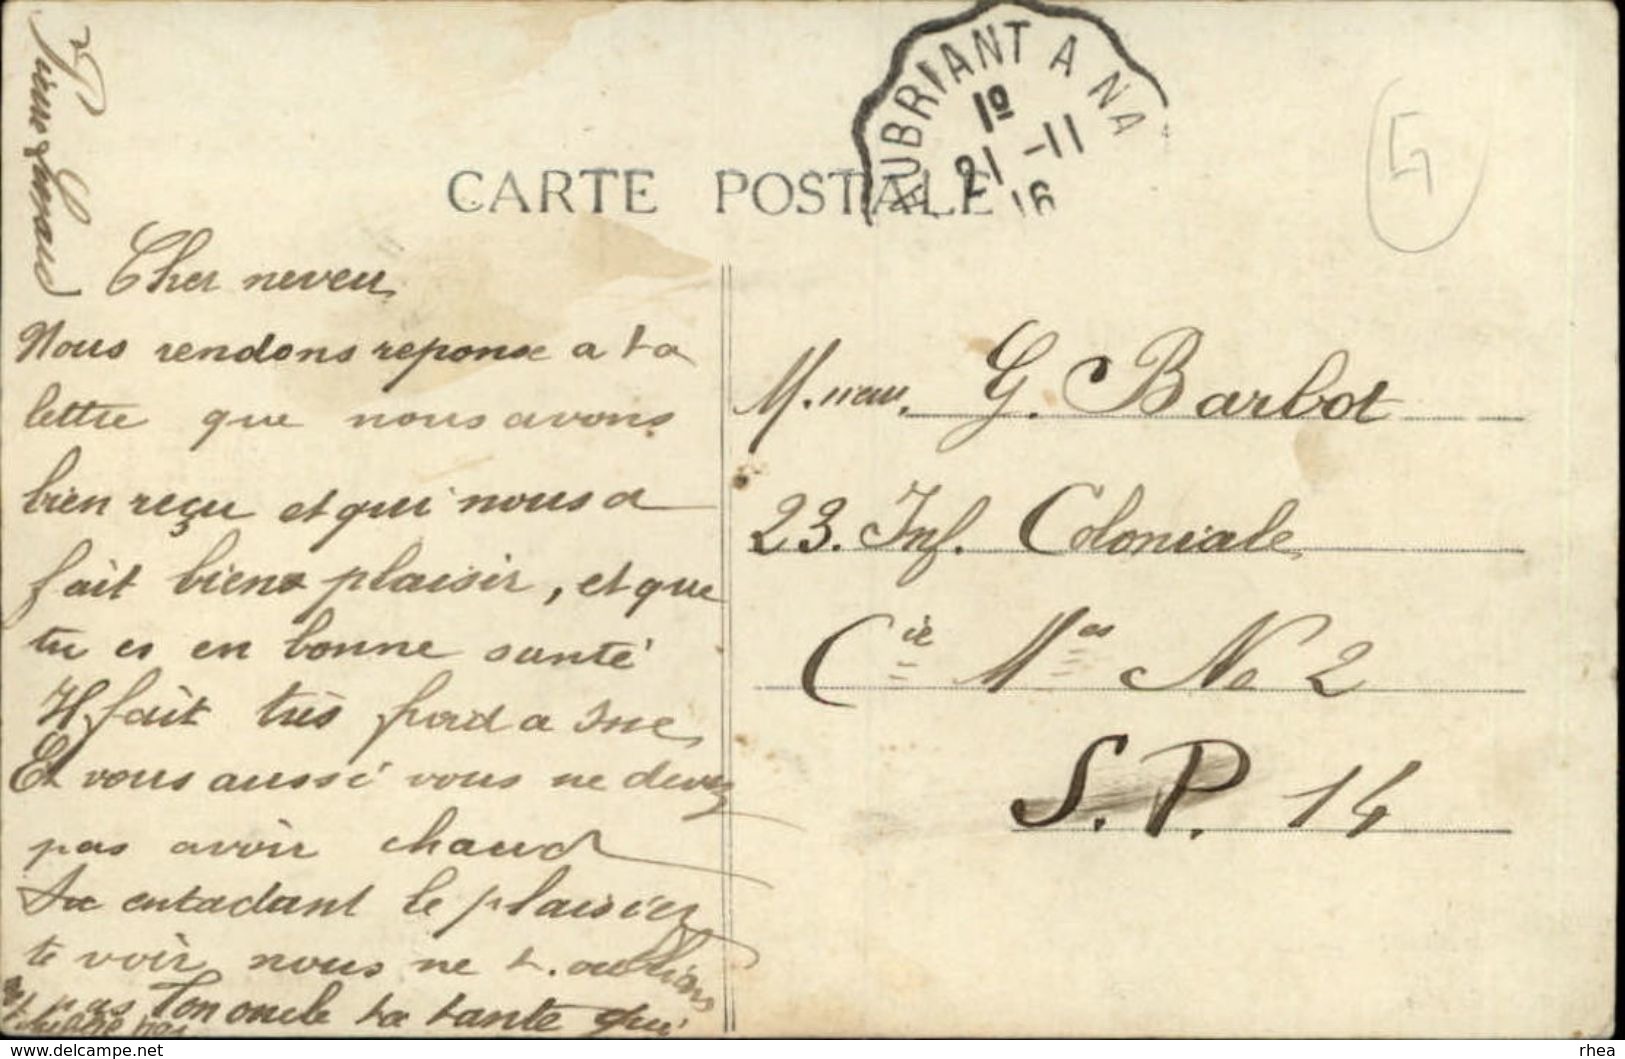 UBRIANT A NA
1º
21 -11
16
CARTE POSTALE
5
Cher neveu
Nous rendons reponse a ta
lettre que nous avons
bien reçu et qui nous a
fait bien plaisir, et que
tu es en bonne santé
Il fait très froid a
Et vous aussi vous ne devez
pas avoir chaud
entadant le plaisir
te voir nous ne t. oublions
pas Ton oncle ta tante qui
pas
Pierre
M.
G. Barbot
23. Inf. Coloniale
Cie Mes No 2
S. P. 14
delcampe.net
rhea